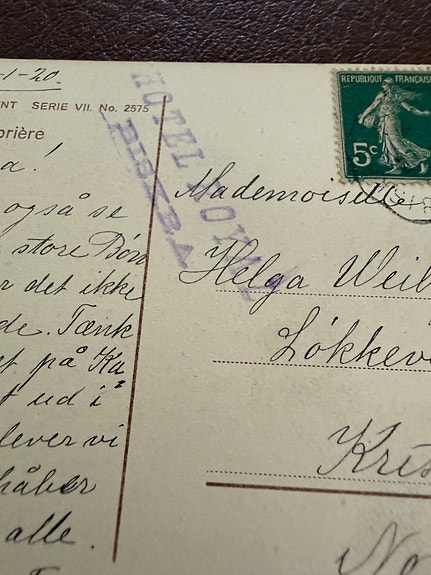 -1-20.
NT SERIE VII. No. 2575
rière
a!
også se
store Børn
r det ikke
de. Tænk
et på Ka
t ud i
lever vi
håber
alle.
HOTEL ROYAL
BISKRA
REPUBLIQUE FRANÇAISE
5c
Mademoiselle
Helga Weil
Løkkev
Kris
No